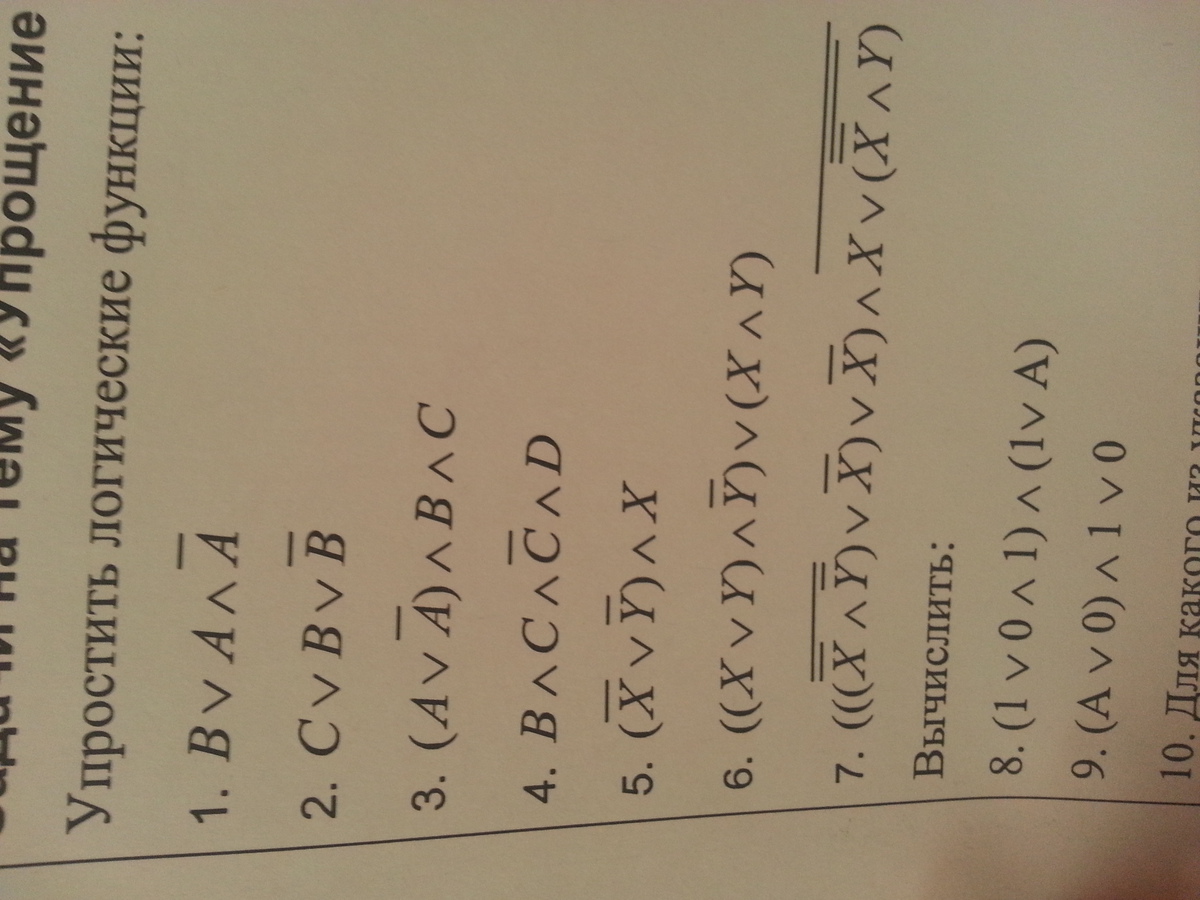 Задачи на тему «Упрощение
Упростить логические функции:
1. B ∨ A ∧ A̅
2. C ∨ B ∨ B̅
3. (A ∨ A̅) ∧ B ∧ C
4. B ∧ C ∧ C̅ ∧ D
5. (X̅ ∨ Y̅) ∧ X
6. ((X ∨ Y) ∧ Y̅) ∨ (X ∧ Y)
7. (((X̿ ∧ Y̿) ∨ X̅) ∨ X̅) ∧ X ∨ (X̿ ∧ Y)
Вычислить:
8. (1 ∨ 0 ∧ 1) ∧ (1 ∨ A)
9. (A ∨ 0) ∧ 1 ∨ 0
10. Для какого из